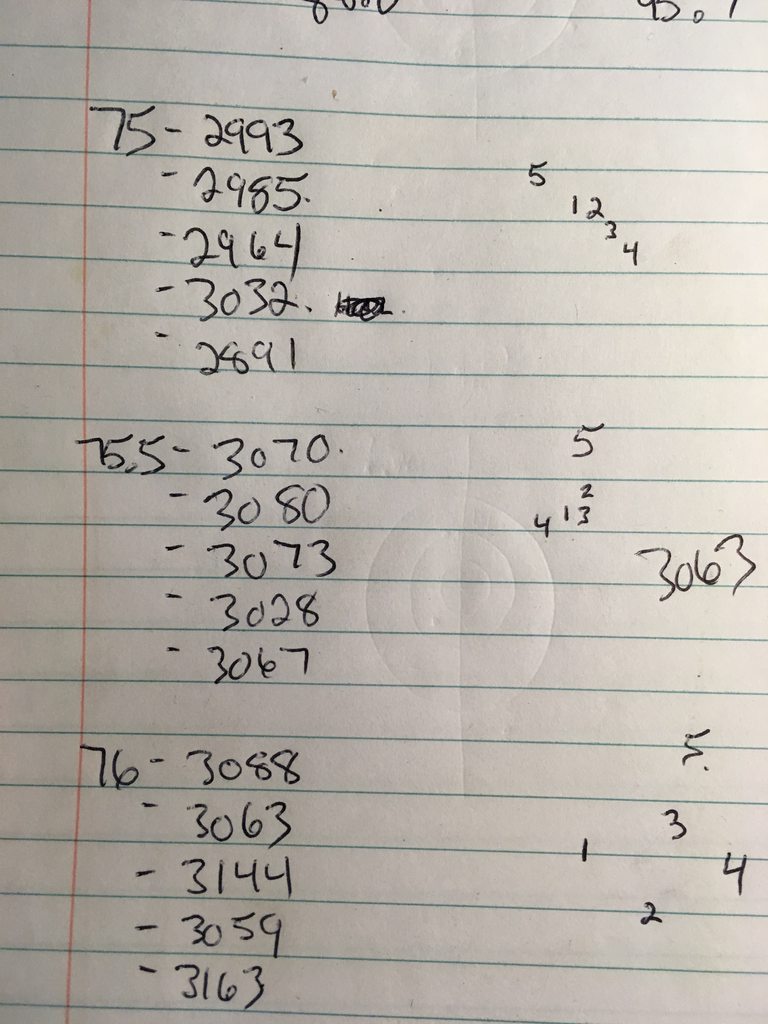 75 - 2993
- 2985.
5
1 2
3
- 2964
4
- 3032.
- 2891
75.5 - 3070.
5
- 3080
2
4 1 3
- 3073
3063
- 3028
- 3067
76 - 3088
5.
- 3063
3
1
- 3144
4
- 3059
2
- 3163